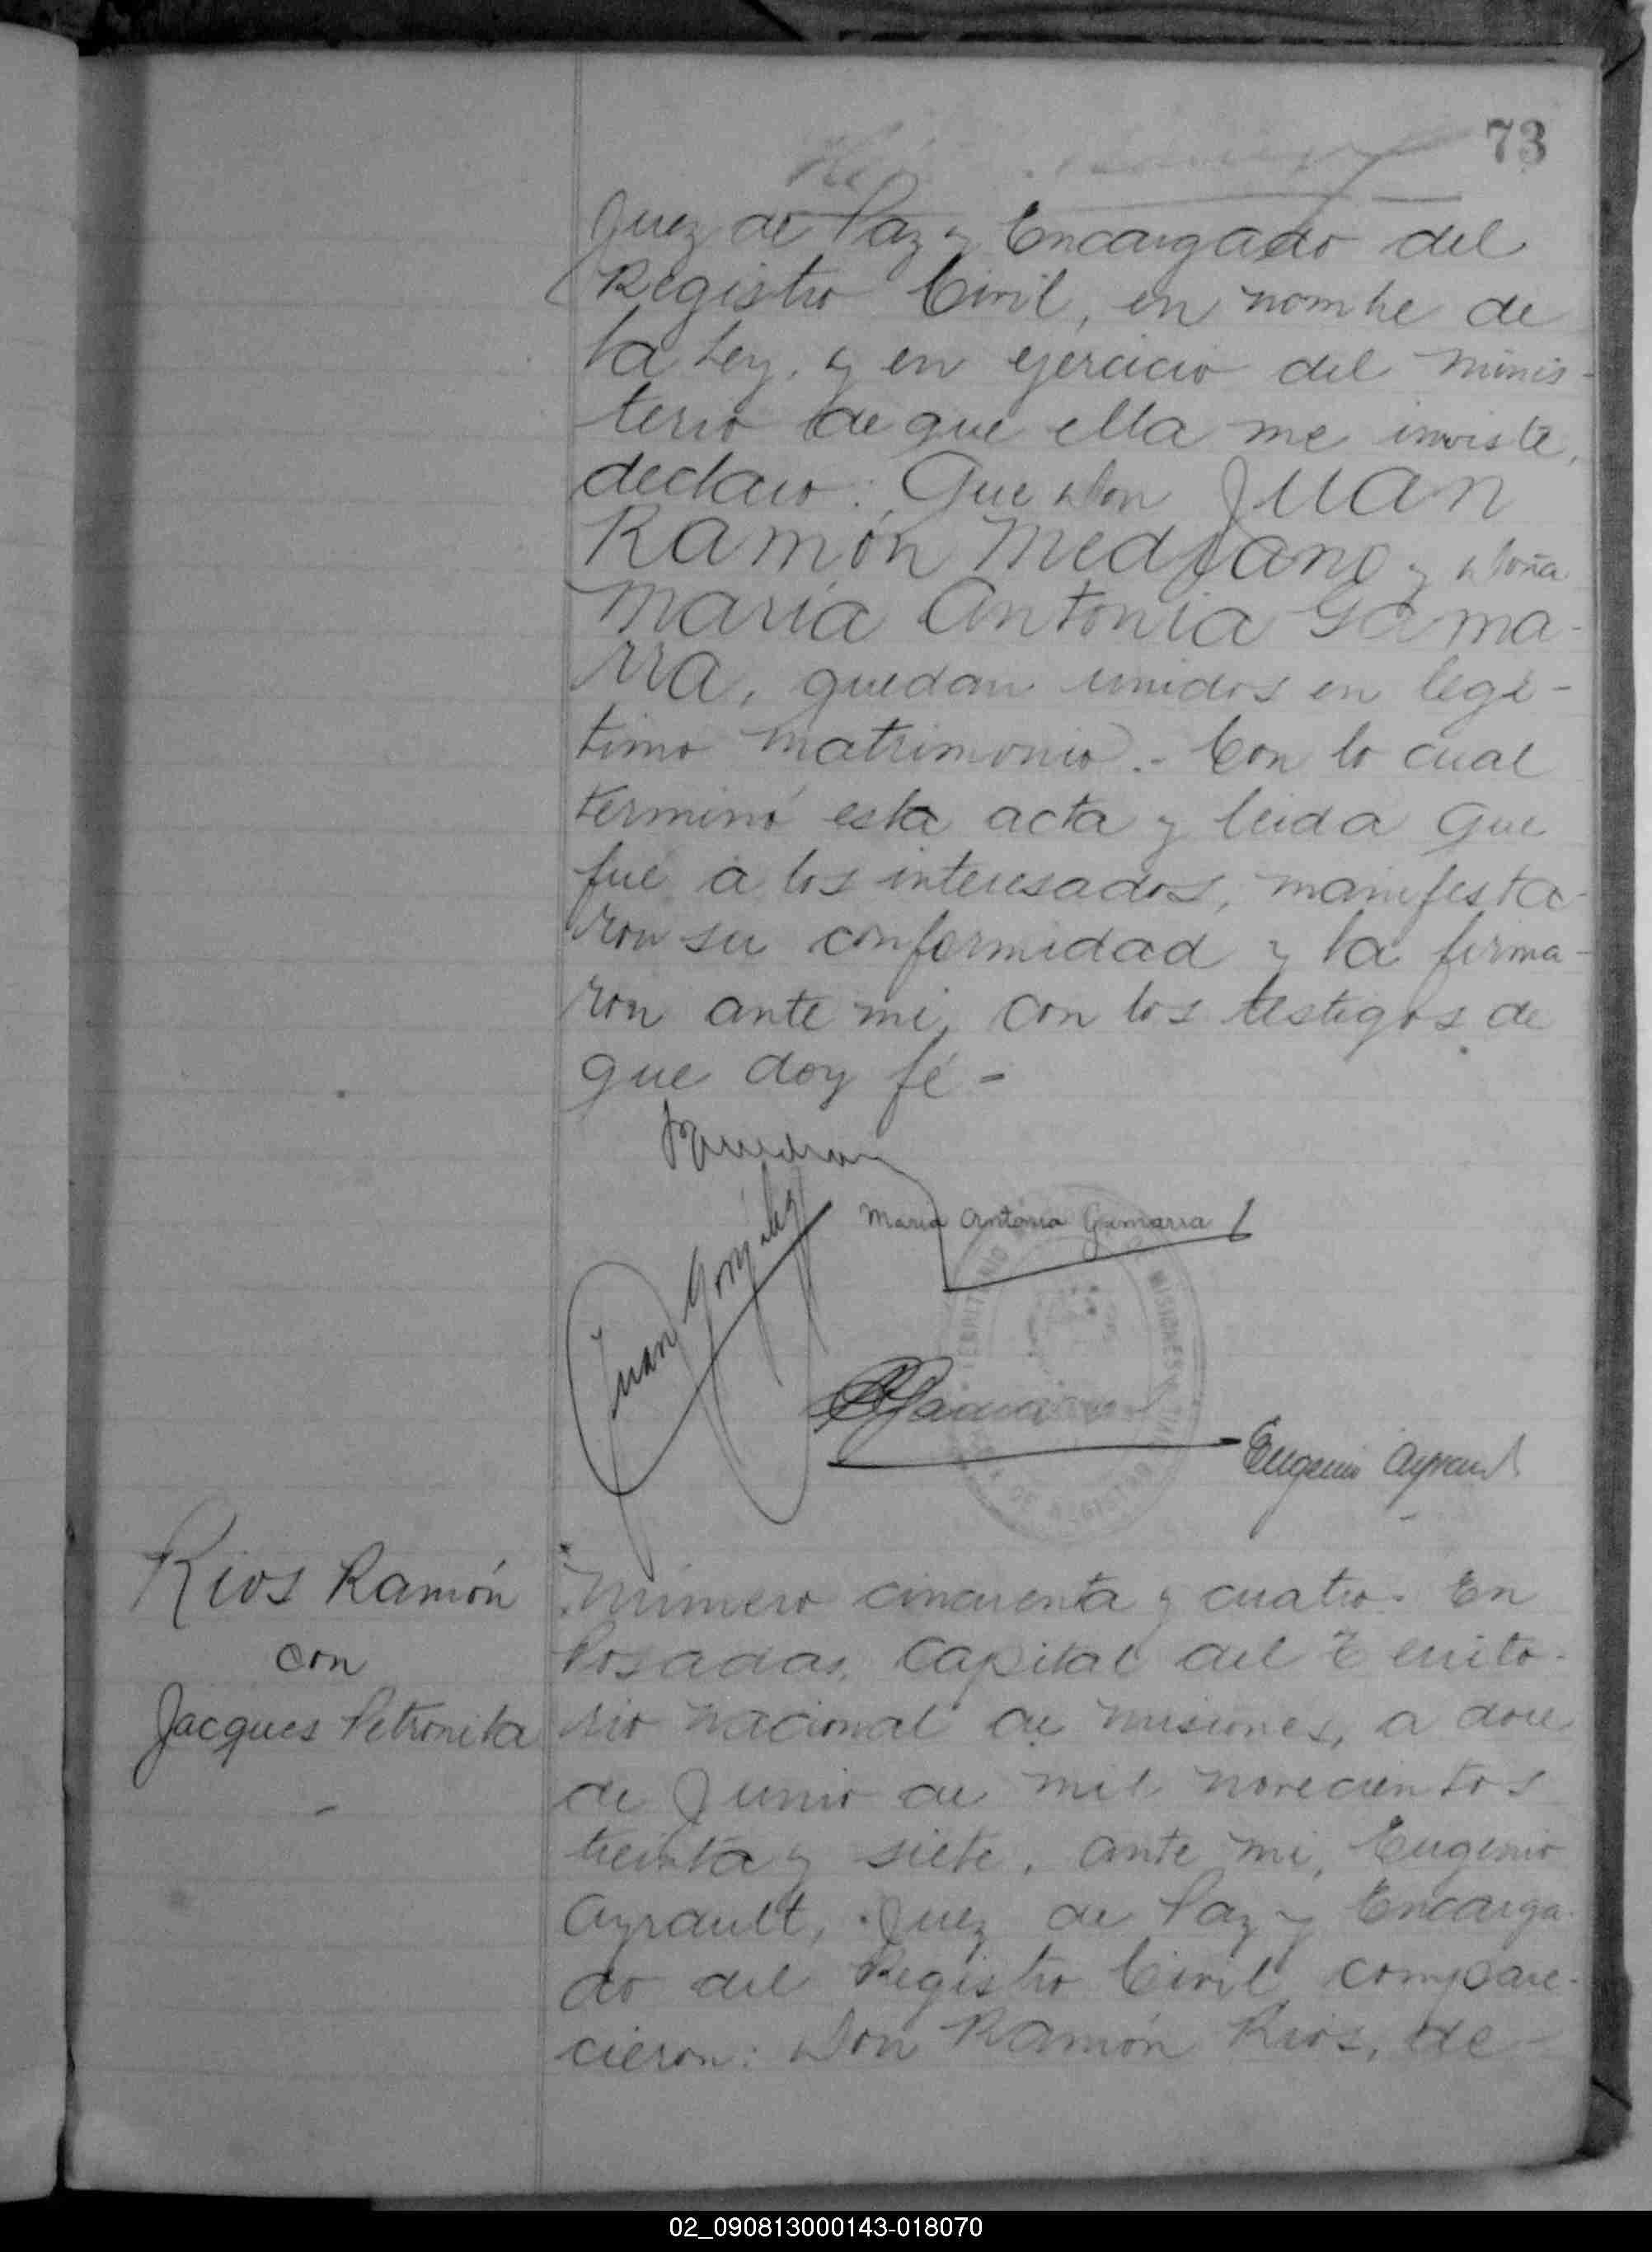 73
Juez de Paz y Encargado del
Registro Civil, en nombre de
la Ley, y en ejercicio del minis-
terio de que ella me inviste,
declaro: Que Don JUAN
RAMÓN MEDRANO y Doña
MARÍA ANTONIA GAMA-
RRA, quedan unidos en legí-
timo matrimonio.- Con lo cual
terminó esta acta y leida que
fué a los interesados, manifesta-
ron su conformidad y la firma-
ron ante mi, con los testigos de
que doy fé -
Maria Antonia Gamarra
Juan González
Eugenio Ayrault
TERRITORIO
DE MISIONES
DE REGISTRO CIVIL
Rios Ramón
con
Jacques Petronila
-
Número cincuenta y cuatro. En
Posadas, Capital del Territo-
rio Nacional de Misiones, a doce
de Junio de mil novecientos
treinta y siete, ante mi, Eugenio
Ayrault, Juez de Paz y Encarga-
do del Registro Civil, compare-
cieron: Don Ramón Rios, de
02_090813000143-018070